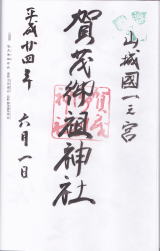 山城國一之宮
賀茂御祖神社
平成廿四年 六月一日